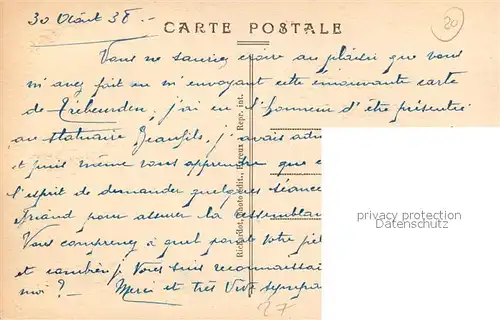 30 Août 38.-
CARTE POSTALE
20
Vous ne sauriez croire au plaisir que vous
m'avez fait en m'envoyant cette émouvante carte
de Trébeurden, j'ai eu l'honneur d'être présentée
au statuaire Beaufils, j'avais
et puis même vous apprendre que
l'esprit de demander quelques séances
Briand pour assurer la ressemblan
Vous comprenez à quel point votre
et combien je vous suis reconnaissa
moi ? - Merci et très vive sympa
27
Richardot, Photo-édit., Evreux - Repr. int.
privacy protection
Datenschutz